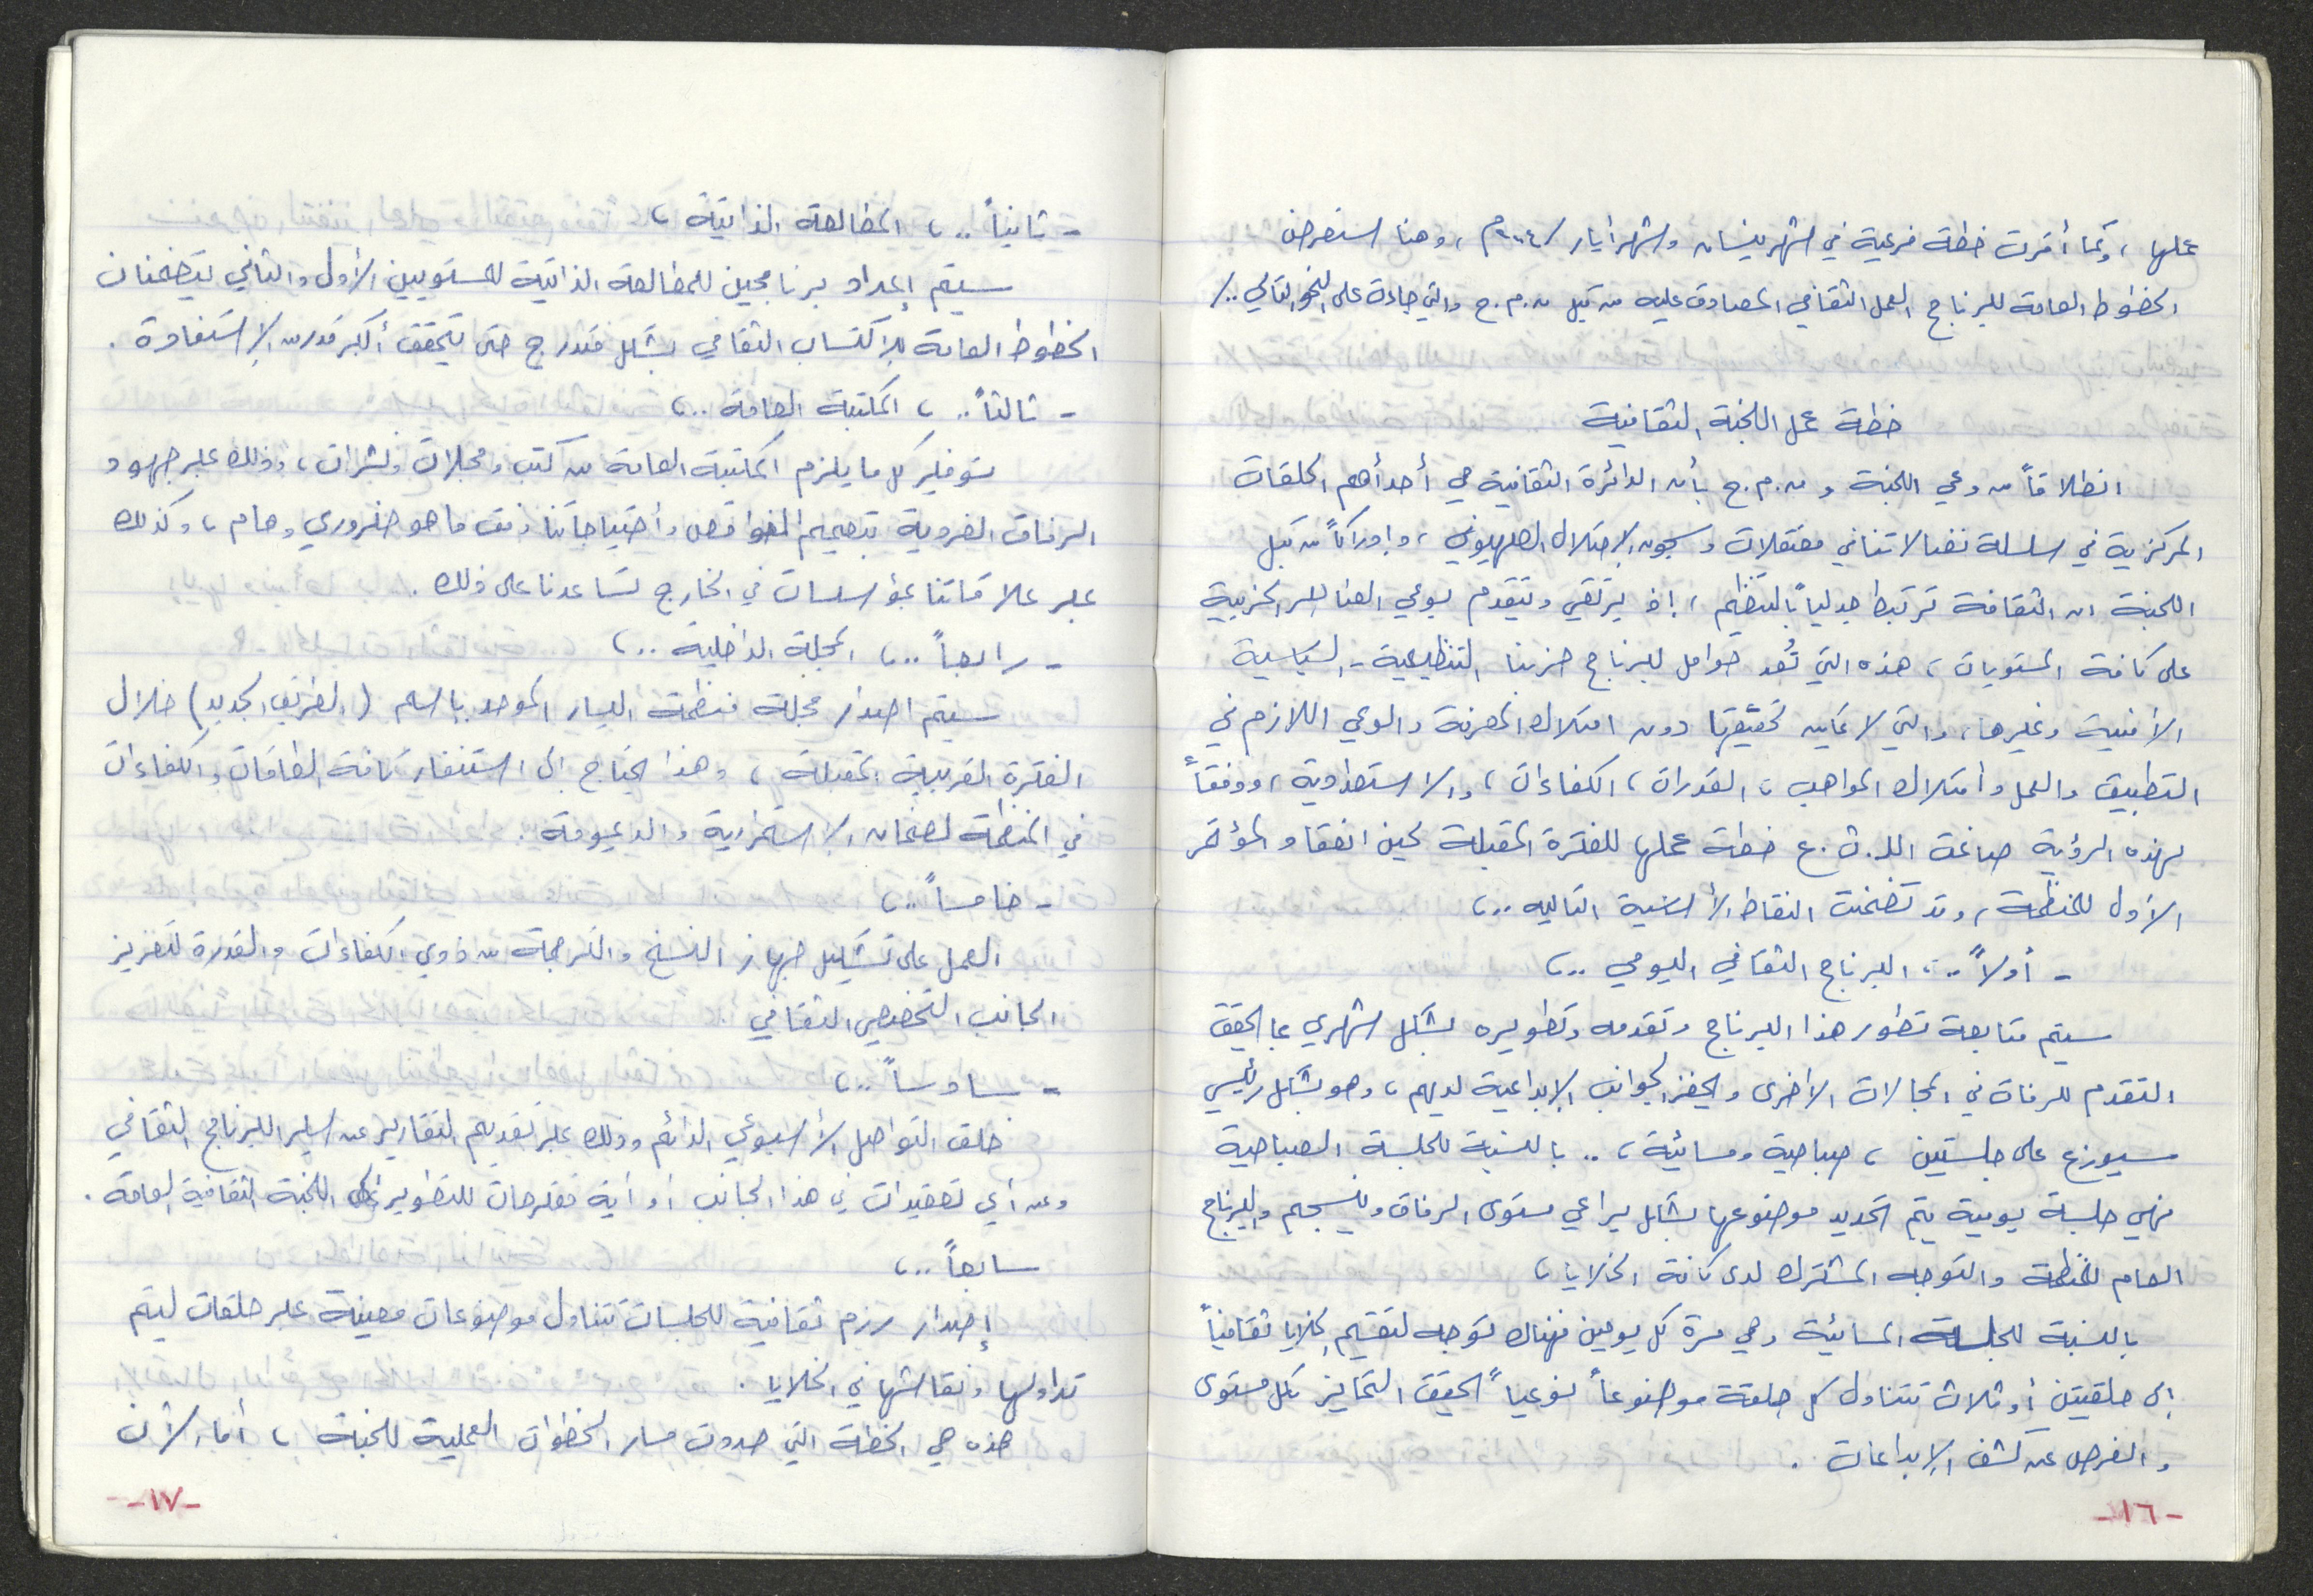 عملها ، وكما أقرت خطة فرعية في شهر نيسان وشهر أيار /٢٠٠٤م ، وهنا استعرض
الخطوط العامة للبرنامج العمل الثقافي المصادق عليه من قبل م.م.ح والتي جاءت على النحو التالي ../
خطة عمل اللجنة الثقافية
انطلاقاً من وعي اللجنة و م.م.ح بأن الدائرة الثقافية هي أحد أهم الحلقات
المركزية في سلسلة نضالاتنا في معتقلات وسجون الاحتلال الصهيوني ، وإدراكاً من قبل
اللجنة ان الثقافة ترتبط جدلياً بالتنظيم ، إذ يرتقي ويتقدم بوعي العناصر الحزبية
على كافة المستويات ، هذه التي تُعد حوامل للبرنامج حزبنا التنظيمية - السياسية
الأمنية وغيرها ، والتي لا يمكن تحقيقها دون امتلاك المعرفة والوعي اللازم في
التطبيق والعمل وامتلاك المواهب ، القدرات ، الكفاءات ، والاستعدادية ، ووفقاً
لهذه الرؤية صاغت الل.ث.ع خطة عملها للفترة المقبلة لحين انعقاد المؤتمر
الأول للمنظمة ، وقد تضمنت النقاط الأساسية التاليه ..،
- أولاً ..، البرنامج الثقافي اليومي ..،
سيتم متابعة تطور هذا البرنامج وتقدمه وتطويره بشكل شهري بما يحقق
التقدم للرفاق في المجالات الأخرى ويحفز الجوانب الإبداعية لديهم ، وهو بشكل رئيسي
سيوزع على جلستين ، صباحية ومسائية ، .. بالنسبة للجلسة الصباحية
فهي جلسة يومية يتم تحديد موضوعها بشكل يراعي مستوى الرفاق وينسجم والبرنامج
العام للمنظمة والتوجه المشترك لدى كافة الخلايا ،
بالنسبة للجلسة المسائية وهي مرة كل يومين فهناك توجه لتقسيم الخلايا ثقافياً
إلى حلقتين أو ثلاث تتناول كل حلقة موضوعاً نوعياً لتحقق التمايز بكل مستوى
والفرص عن كشف الإبداعات .
-١٦-
- ثانياً ..، المطالعة الذاتية ،
سيتم إعداد برنامجين للمطالعة الذاتية للمستويين الأول والثاني يتضمنان
الخطوط العامة للاكتساب الثقافي بشكل متدرج حتى تتحقق أكبر قدر من الاستفادة .
- ثالثاً ..، المكتبة العامة ..،
توفير كل ما يلزم المكتبة العامة من كتب ومجلات ونشرات ، وذلك عبر جهود
الرفاق الفردية بتصميم النواقص واحتياجاتنا وفق ما هو ضروري وهام ، وكذلك
عبر علاقاتنا بمؤسسات في الخارج تساعدنا على ذلك .
- رابعاً ..، المجلة الداخلية ..،
سيتم اصدار مجلة منظمة اليسار الموحد باسم (الطريق الجديد) خلال
الفترة القريبة المقبلة ، وهذا يحتاج إلى استنفار كافة الطاقات والكفاءات
في المنظمة لضمان الاستمرارية والديمومة .
- خامساً ..،
العمل على تشكيل جهاز النسخ والترجمة من ذوي الكفاءات والقدرة لتعزيز
الجانب التخصصي الثقافي .
- سادساً ..،
خلق التواصل الأسبوعي الدائم وذلك عبر تقديم التقارير عن سير البرنامج الثقافي
وعن أي تعقيدات في هذا الجانب او أية مقترحات للتطوير إلى اللجنة الثقافية العامة .
سابعاً ..،
إصدار رزم ثقافية للجلسات تتناول موضوعات معينة عبر حلقات ليتم
تداولها ونقاشها في الخلايا .
هذه هي الخطة التي حددت مسار الخطوات العملية للجنة ، أما الآن
-١٧-